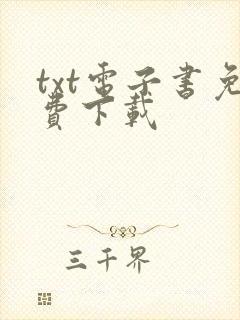 txt電子書免
費下載
三千界